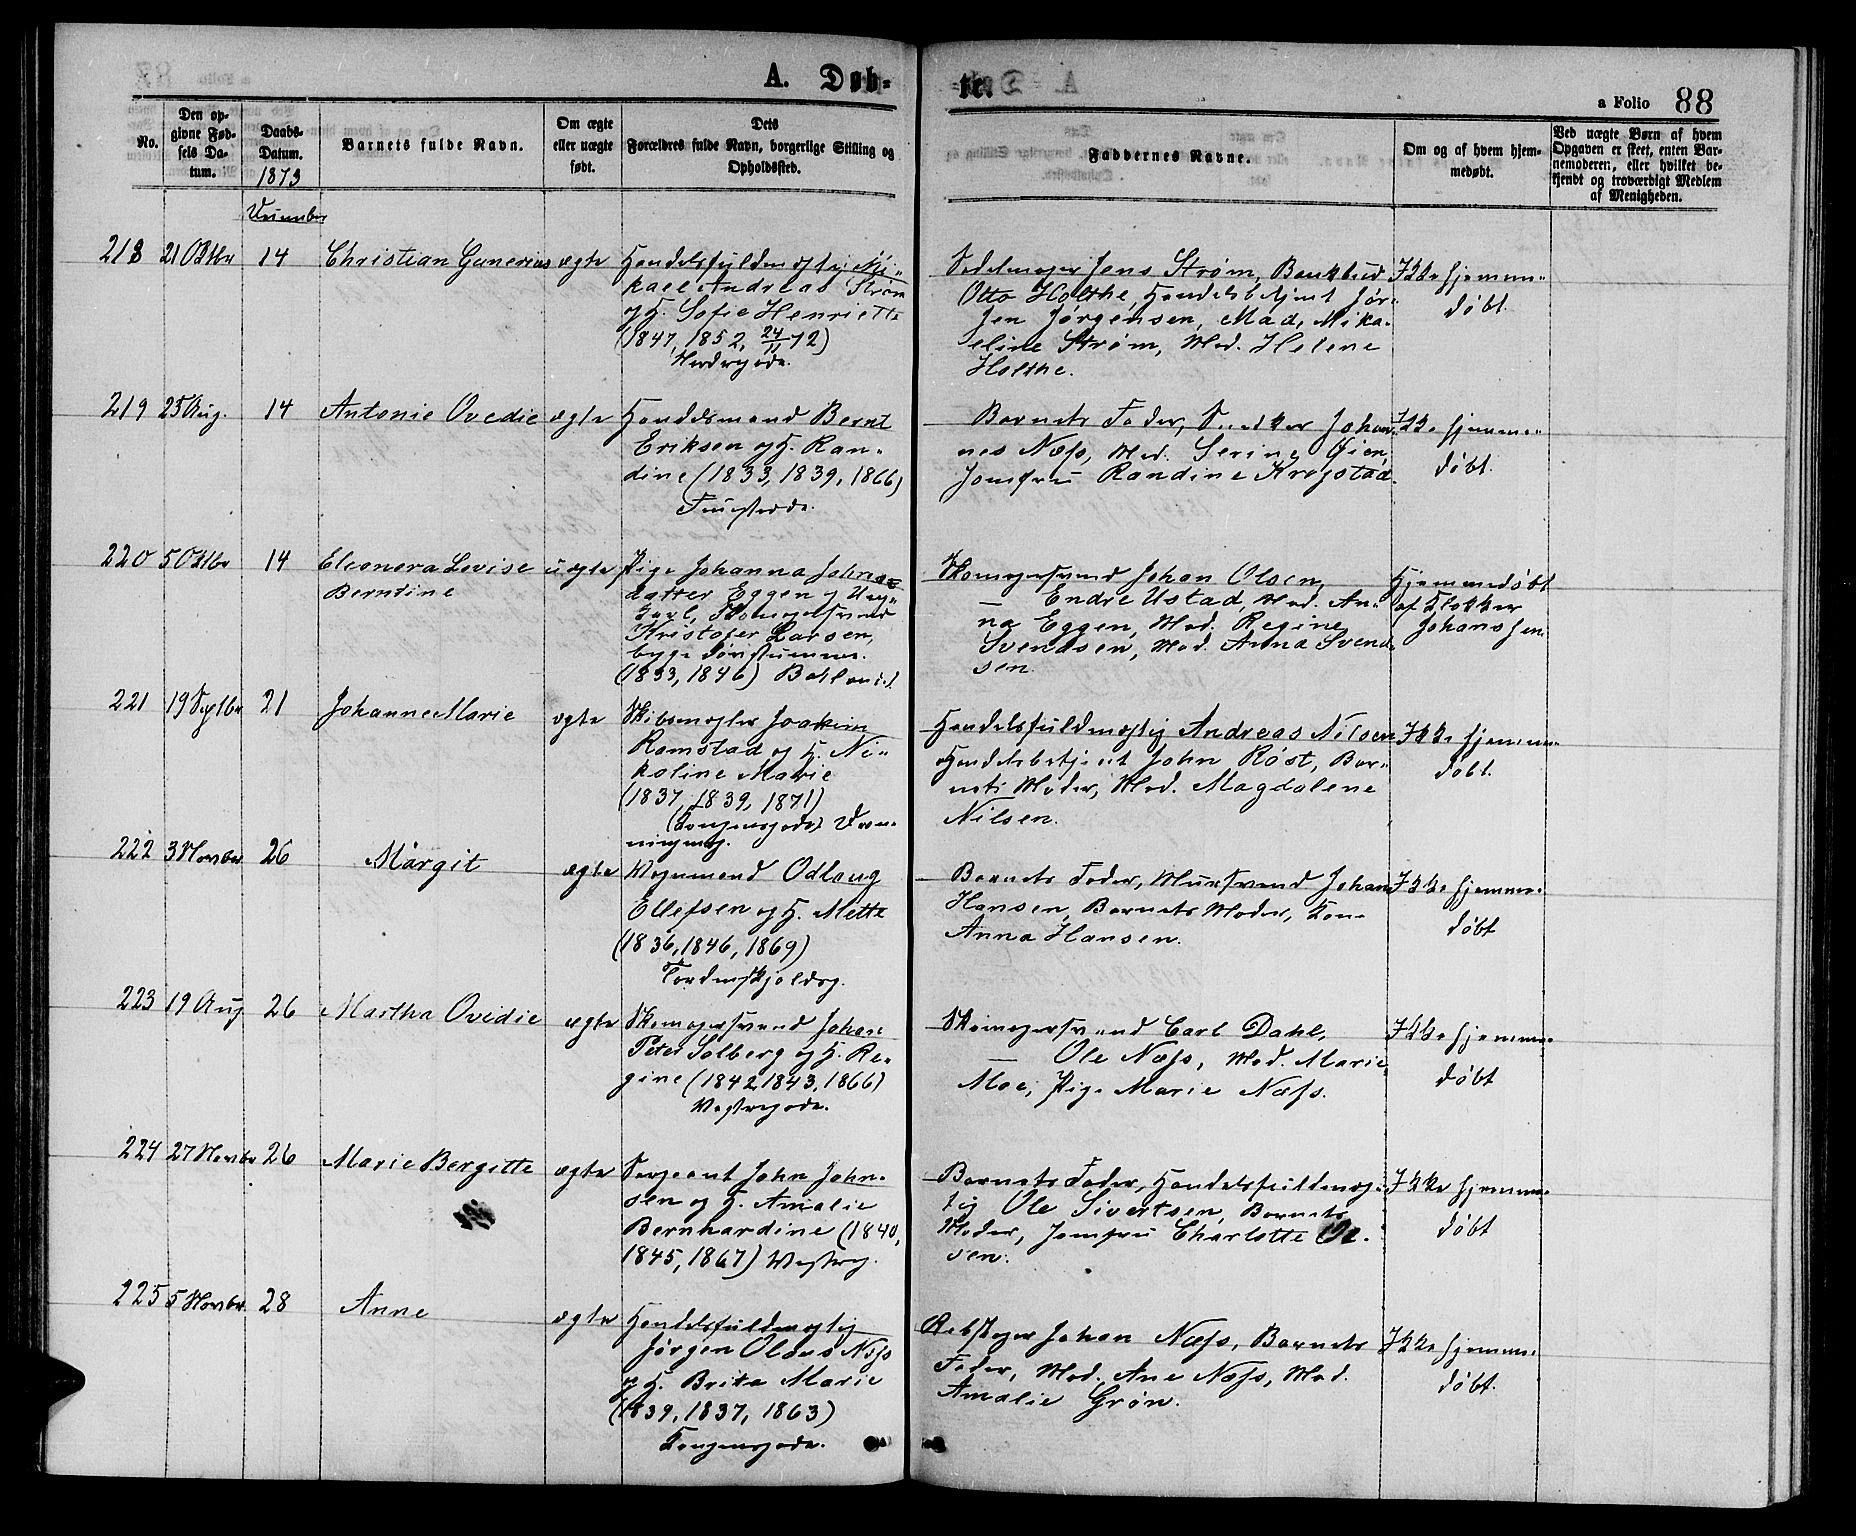 A. Døb-
te.
a Folio 88
No.
Den op-
givne Fød-
sels Da-
tum.
Daabs-
Datum.
1873
Barnets fulde Navn.
Om ægte
eller uægte
født.
Dets
Forældres fulde Navn, borgerlige Stilling og
Opholdssted.
Faddernes Navne.
Om og af hvem hjem-
medøbt.
Ved uægte Børn af hvem
Opgaven er skeet, enten Bar-
nemoderen, eller hvilket be-
kjendt og troværdigt Medlem
af Menigheden.
Desember
218 21 Oktbr 14 Christian Gunerius ægte Handelsfuldmægtig Mi-
kael Andreas Strøm
og H. Sofie Henriette
(1847, 1852, 24/11 72)
Nordregade.
Sadelmager Jens Strøm, Bankbud
Otto Holthe, Handelsbetjent Jør-
gen Jørgensen, Mad. Mika-
eline Strøm, Mad. Helene
Holthe.
Ikke hjemme-
døbt.
219 25 Aug. 14 Antonie Ovedie ægte Handelsmand Bernt
Eriksen og H. Ran-
dine (1833, 1839, 1866)
Barnets Fader, Snedker Johan-
nes Næss, Mad. Serine Øien,
Jomfru Randine Krogstad.
Ikke hjemme-
døbt.
220 5 Oktbr 14 Eleonora Lovise
Berntine
uægte Pige Johanna Johns-
datter Eggen og Ung-
karl, Skomagersvend
Kristofer Larsen,
begge Døvstumme.
(1833, 1846) Bakland.
Skomagersvend Johan Olsen,
— Endre Ustad, Mad. An-
na Eggen, Mad. Regine
Svendsen, Mad. Anna Svend-
sen.
Hjemmedøbt
af Klokker
Johanssen
221 19 Septbr 21 Johanne Marie ægte Skibsmægler Joakim
Ramstad og H. Ni-
koline Marie
(1837, 1839, 1871)
(Kongensgade) Dron-
ningensg.
Handelsfuldmægtig Andreas Nilsen
Handelsbetjent John Røst, Bar-
nets Moder, Mad. Magdalene
Nilsen.
Ikke hjemme-
døbt.
222 3 Novbr 26 Margit ægte Vognmand Odlaug
Ellefsen og H. Mette
(1836, 1846, 1869)
Tordenskjoldsg.
Barnets Fader, Mursvend Johan
Hansen, Barnets Moder, Kone
Anna Hansen.
Ikke hjemme-
døbt
223 19 Aug 26 Martha Ovidie ægte Skomagersvend Johan
Peter Solberg og H. Re-
gine (1842, 1843, 1866)
Vestregade.
Skomagersvend Carl Dahl,
— Ole Næss, Mad. Marie
Moe, Pige Marie Næss.
Ikke hjemme-
døbt
224 27 Novbr 26 Marie Bergitte ægte Sergeant John John-
sen og H. Amalie
Bernhardine (1840,
1845, 1867) Vestreg.
Barnets Fader, Handelsfuldmæg-
tig Ole Sivertsen, Barnets
Moder, Jomfru Charlotte Ol-
sen.
Ikke hjemme-
døbt
225 5 Novbr. 28 Anne ægte Handelsfuldmægtig
Jørgen Olaus Næss
og H. Brita Marie
(1839, 1837, 1863)
Kongensgade.
Rebslager Johan Næss, Barnets
Fader, Mad. Ane Næss, Mad.
Amalie Grøn.
Ikke hjemme-
døbt.